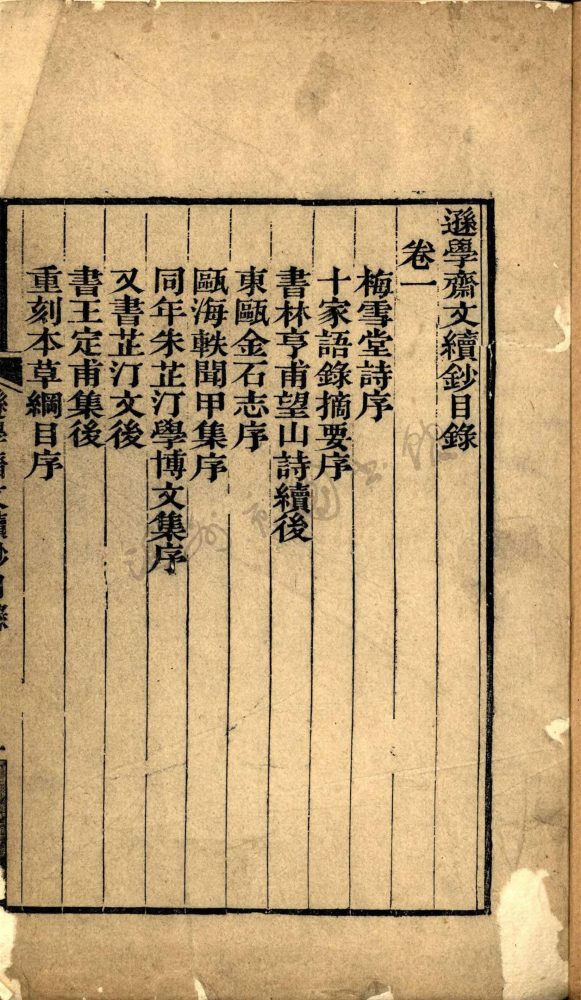 遜學齋文續鈔目錄
卷一
梅雪堂詩序
十家語錄摘要序
書林亨甫望山詩續後
東甌金石志序
甌海軼聞甲集序
同年朱芷汀學博文集序
又書芷汀文後
書王定甫集後
重刻本草綱目序
遜學齋文續鈔目錄
一